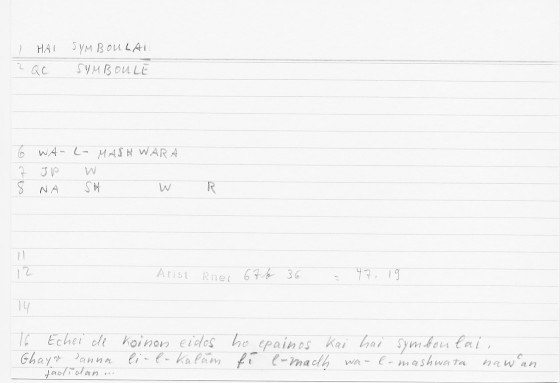 1 HAI SYMBOULAI
2 GC SYMBOULĒ
6 WA-L-MASHWARA
7 JP W
8 NA SH W R
11
12 Arist Rhet 67b 36 = 47.19
14
16 Echei de koinon eidos ho epainos kai hai symboulai.
Ghayr anna li-l-kalām fī l-madḥ wa-l-mashwata naw'an
jadīdan...